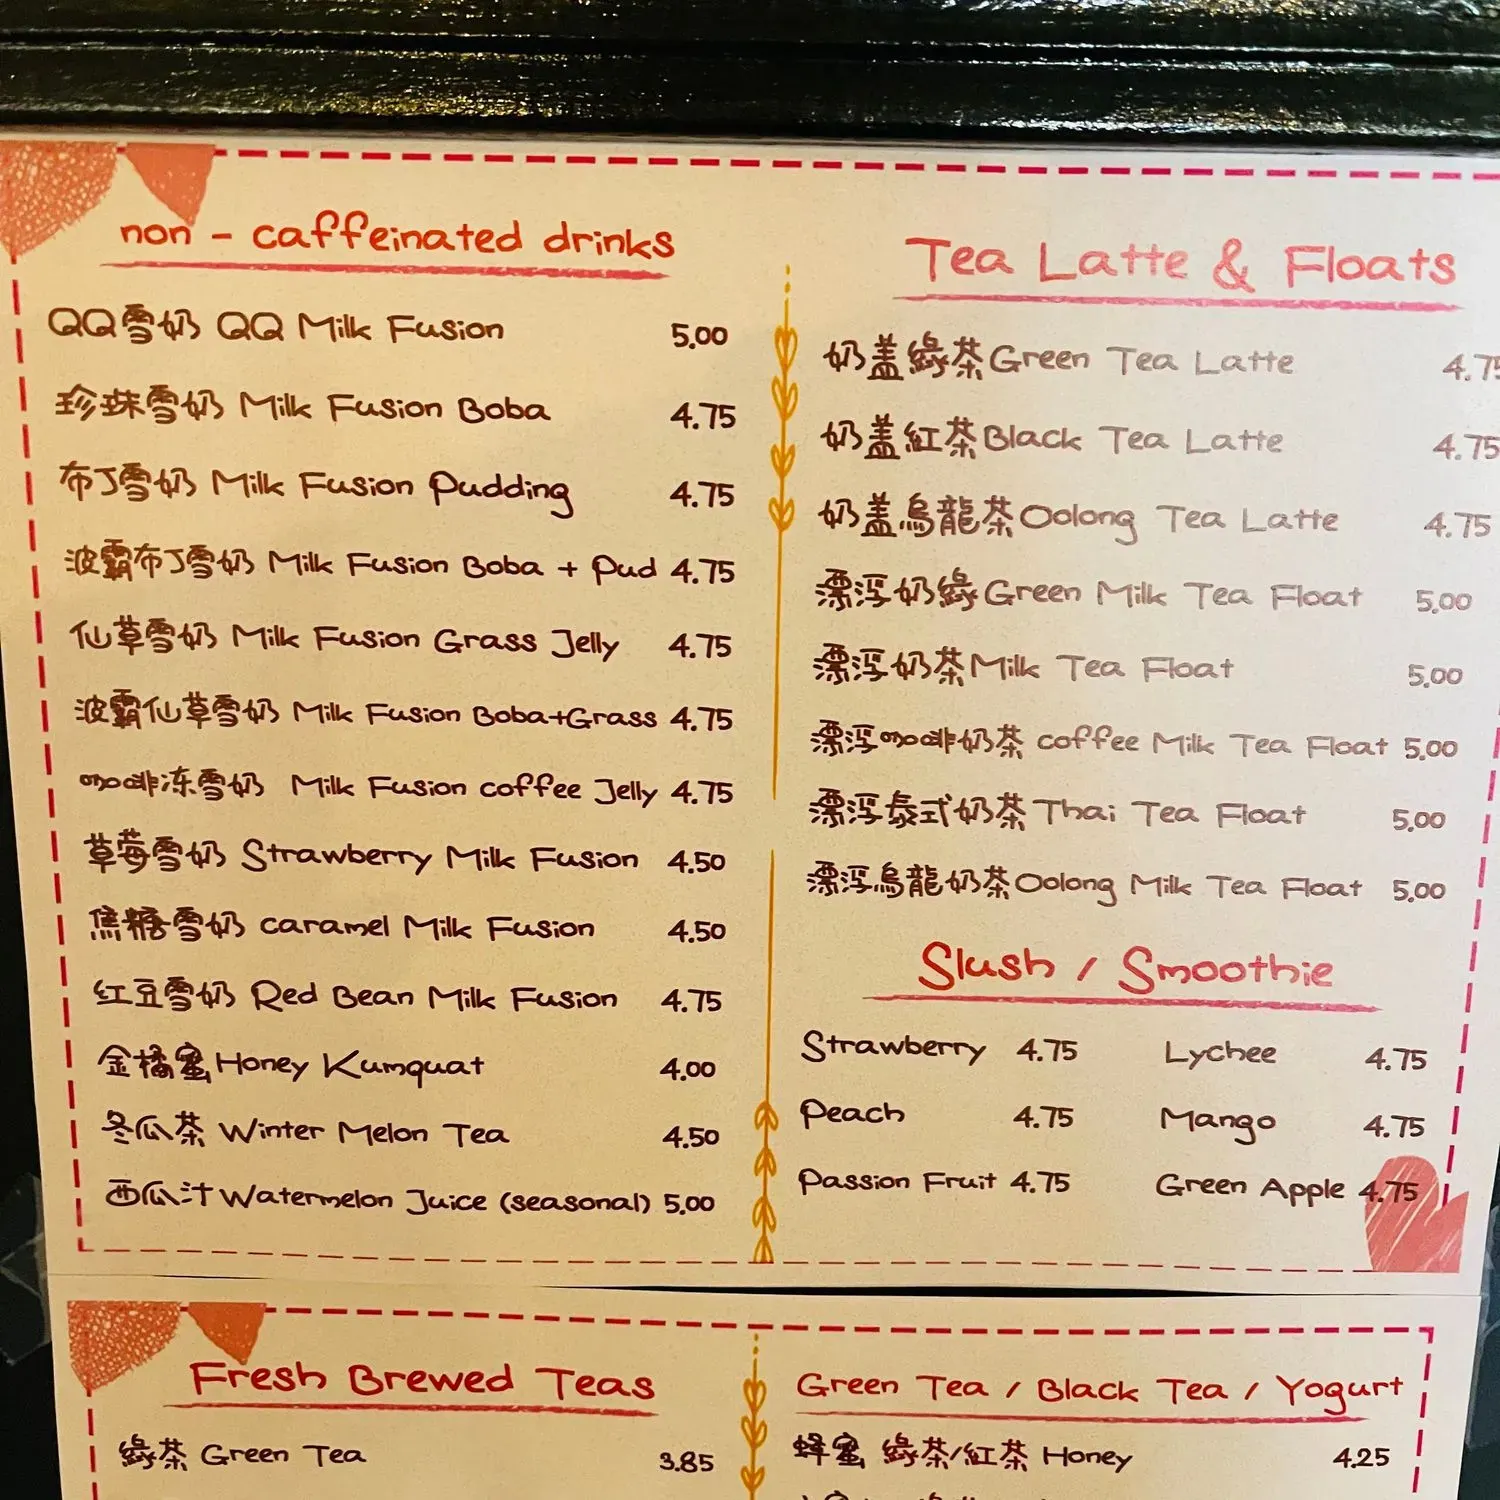 non - caffeinated drinks
QQ雪奶 QQ Milk Fusion 5.00
珍珠雪奶 Milk Fusion Boba 4.75
布丁雪奶 Milk Fusion Pudding 4.75
波霸布丁雪奶 Milk Fusion Boba + Pud 4.75
仙草雪奶 Milk Fusion Grass Jelly 4.75
波霸仙草雪奶 Milk Fusion Boba+Grass 4.75
咖啡冻雪奶 Milk Fusion coffee Jelly 4.75
草莓雪奶 Strawberry Milk Fusion 4.50
焦糖雪奶 caramel Milk Fusion 4.50
红豆雪奶 Red Bean Milk Fusion 4.75
金橘蜜 Honey Kumquat 4.00
冬瓜茶 Winter Melon Tea 4.50
西瓜汁 Watermelon Juice (seasonal) 5.00
Tea Latte & Floats
奶盖綠茶 Green Tea Latte 4.75
奶盖紅茶 Black Tea Latte 4.75
奶盖烏龍茶 Oolong Tea Latte 4.75
漂浮奶綠 Green Milk Tea Float 5.00
漂浮奶茶 Milk Tea Float 5.00
漂浮咖啡奶茶 coffee Milk Tea Float 5.00
漂浮泰式奶茶 Thai Tea Float 5.00
漂浮烏龍奶茶 Oolong Milk Tea Float 5.00
Slush / Smoothie
Strawberry 4.75 Lychee 4.75
Peach 4.75 Mango 4.75
Passion Fruit 4.75 Green Apple 4.75
Fresh Brewed Teas
綠茶 Green Tea 3.85
Green Tea / Black Tea / Yogurt
蜂蜜 綠茶/紅茶 Honey 4.25